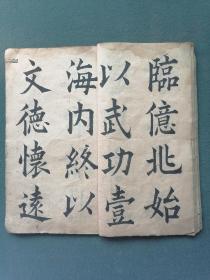 臨億兆始
以武功壹
海内終以
文德懷遠